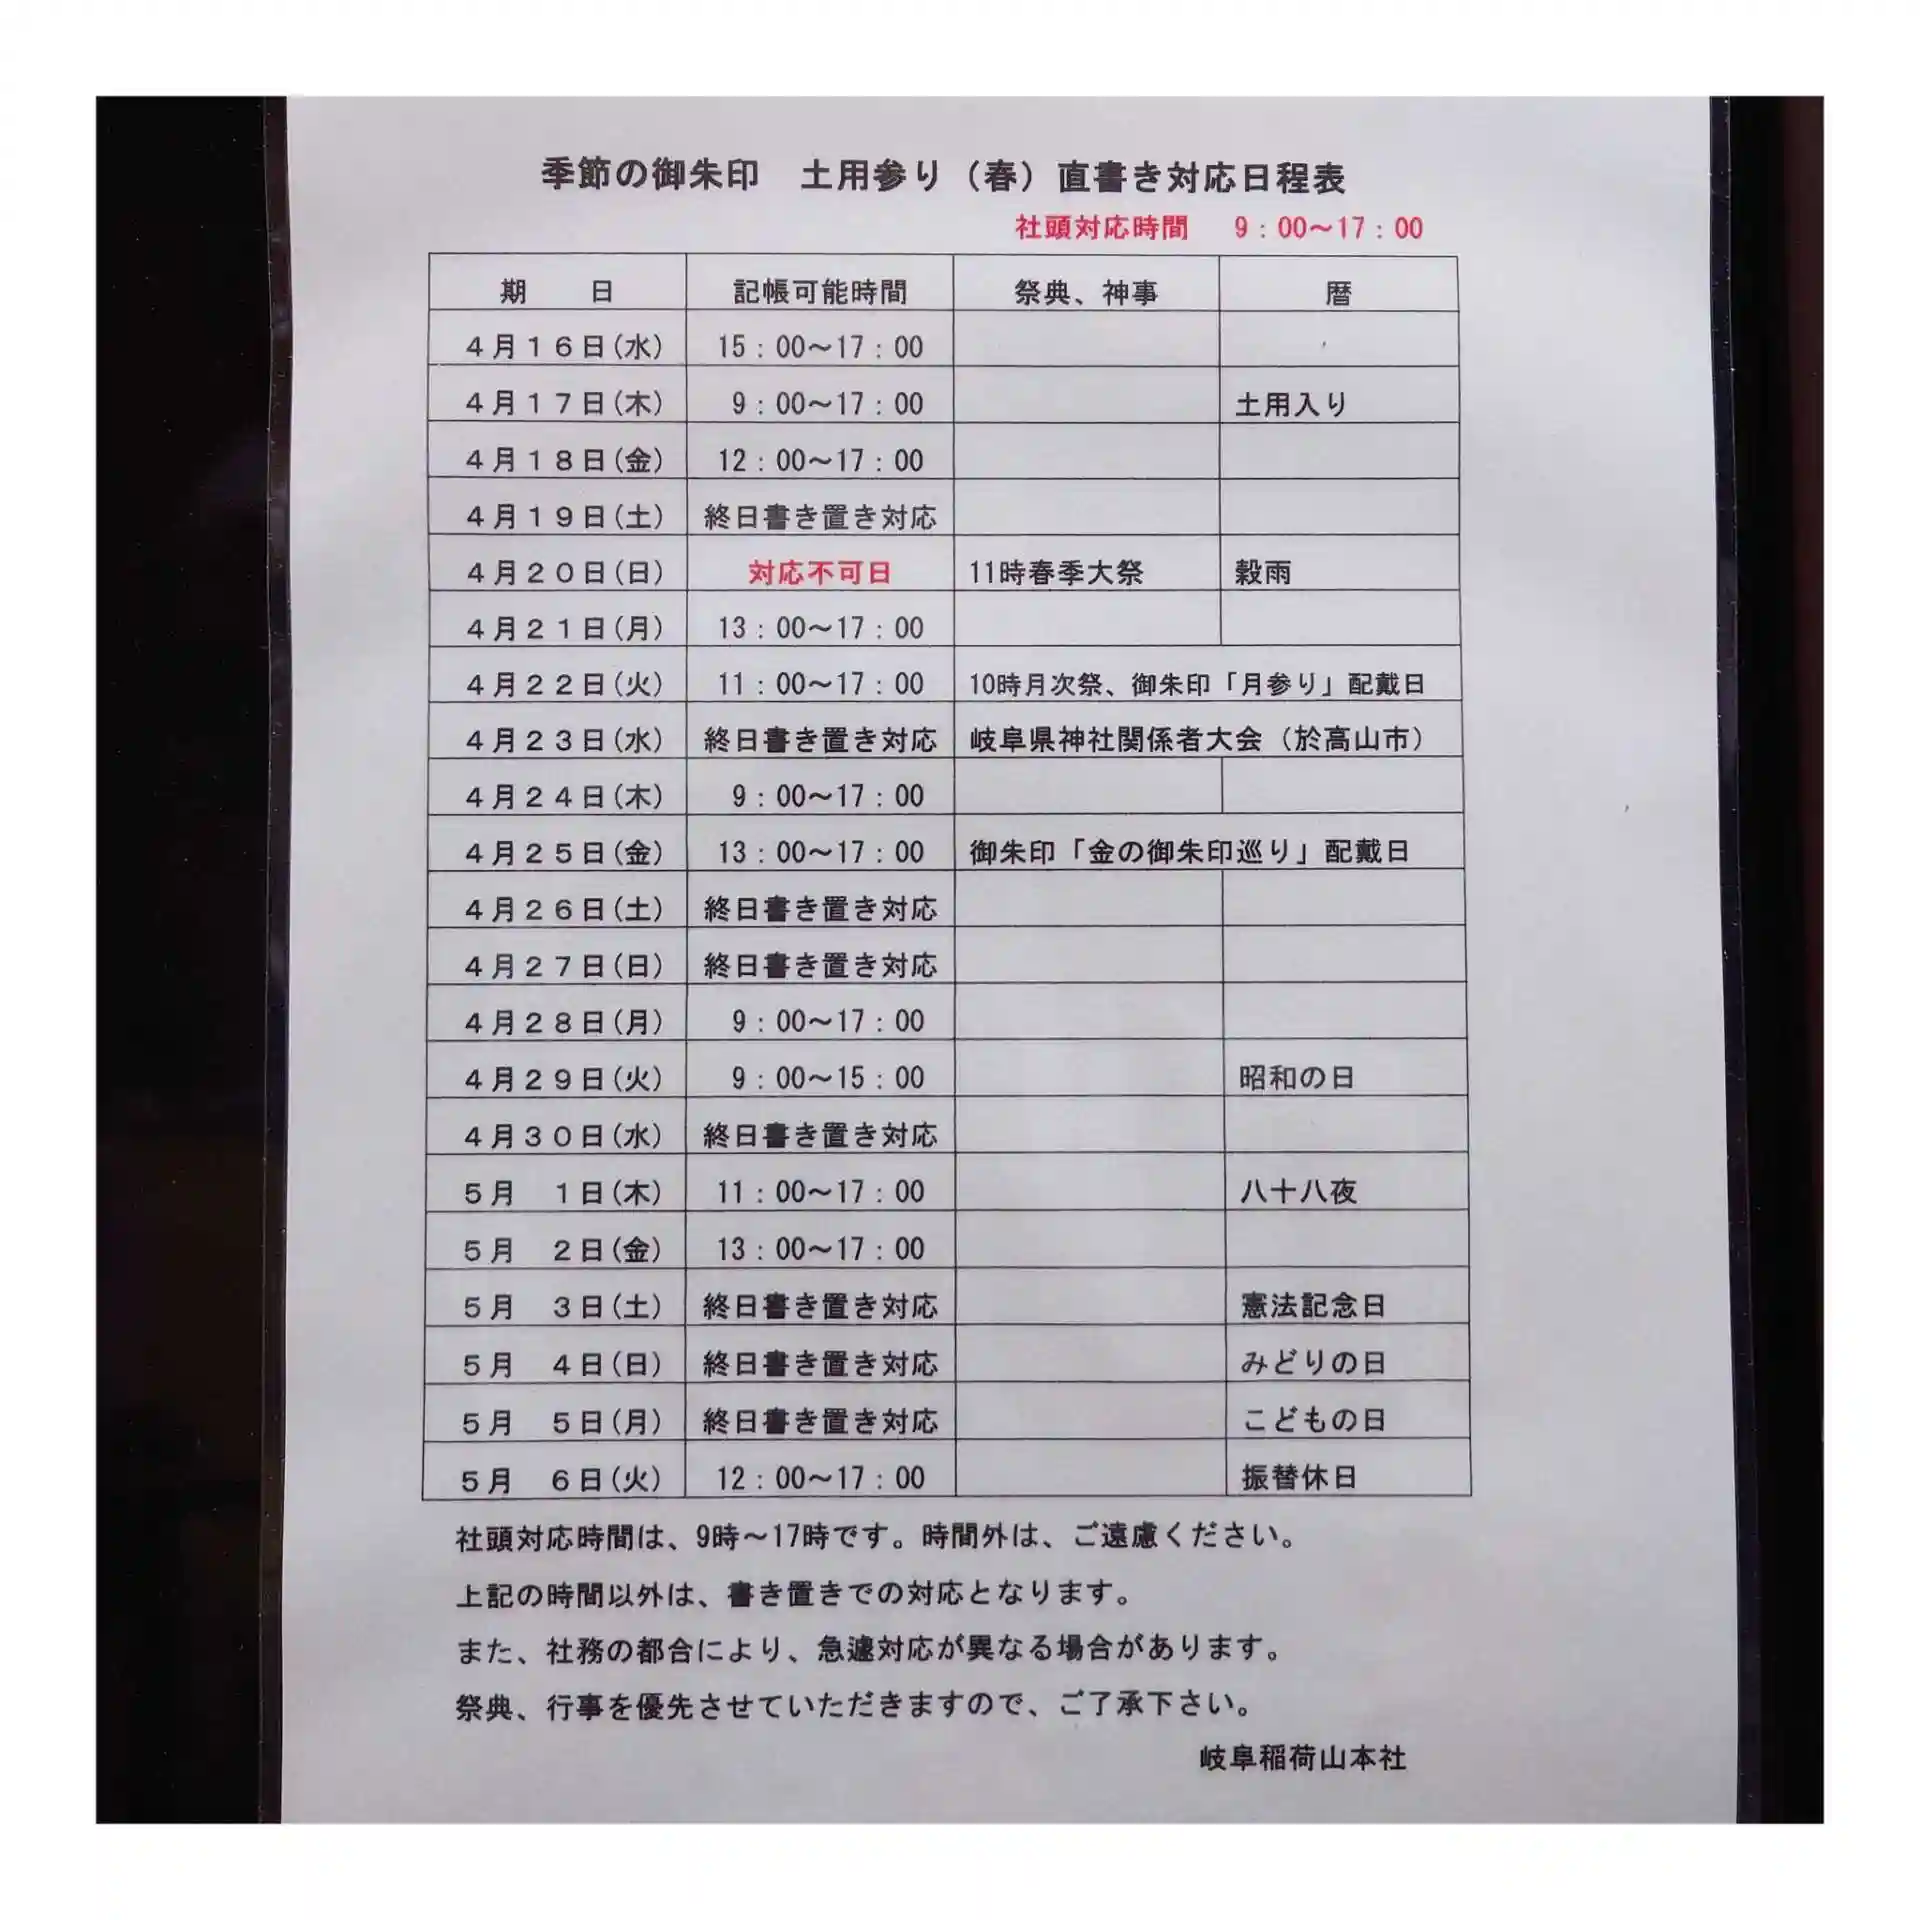 季節の御朱印　土用参り（春）直書き対応日程表
社頭対応時間　9：00～17：00
期　日　記帳可能時間　祭典、神事　暦
4月16日(水)　15：00～17：00
4月17日(木)　9：00～17：00　土用入り
4月18日(金)　12：00～17：00
4月19日(土)　終日書き置き対応
4月20日(日)　対応不可日　11時春季大祭　穀雨
4月21日(月)　13：00～17：00
4月22日(火)　11：00～17：00　10時月次祭、御朱印「月参り」配戴日
4月23日(水)　終日書き置き対応　岐阜県神社関係者大会（於高山市）
4月24日(木)　9：00～17：00
4月25日(金)　13：00～17：00　御朱印「金の御朱印巡り」配戴日
4月26日(土)　終日書き置き対応
4月27日(日)　終日書き置き対応
4月28日(月)　9：00～17：00
4月29日(火)　9：00～15：00　昭和の日
4月30日(水)　終日書き置き対応
5月　1日(木)　11：00～17：00　八十八夜
5月　2日(金)　13：00～17：00
5月　3日(土)　終日書き置き対応　憲法記念日
5月　4日(日)　終日書き置き対応　みどりの日
5月　5日(月)　終日書き置き対応　こどもの日
5月　6日(火)　12：00～17：00　振替休日
社頭対応時間は、9時～17時です。時間外は、ご遠慮ください。
上記の時間以外は、書き置きでの対応となります。
また、社務の都合により、急遽対応が異なる場合があります。
祭典、行事を優先させていただきますので、ご了承下さい。
岐阜稲荷山本社